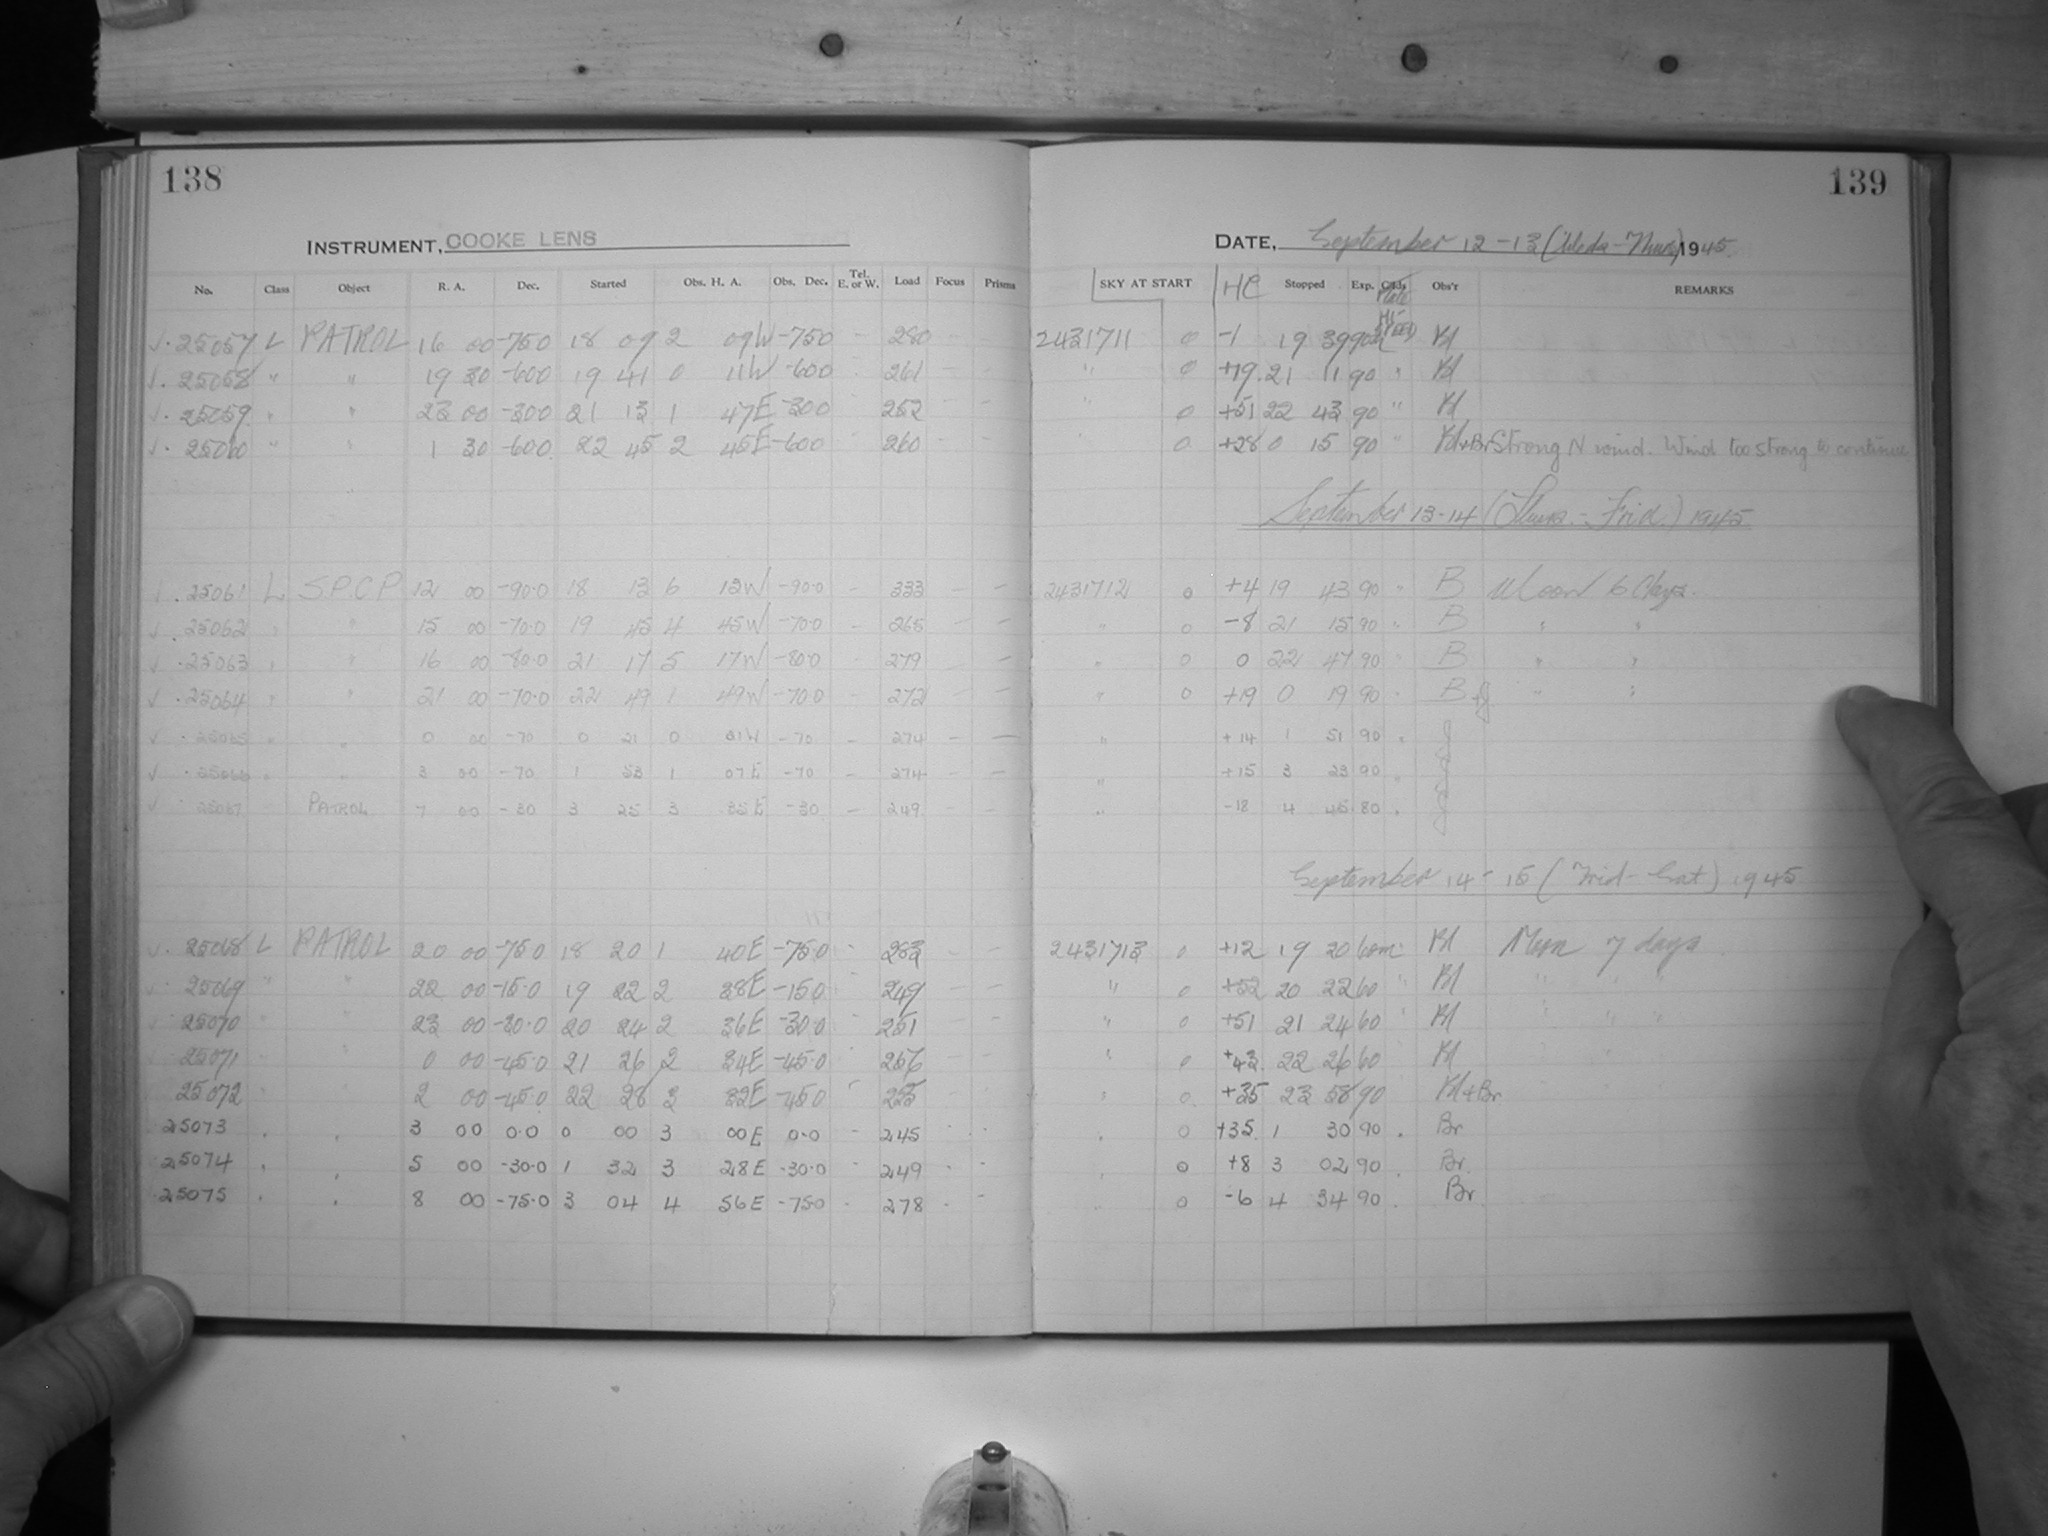 138
139
INSTRUMENT, COOKE LENS
DATE, September 12-13 (Weds-Thurs) 1945
No. Class Object R. A. Dec. Started Obs. H. A. Obs. Dec. Tel. E. or W. Load Focus Prisms SKY AT START HC Stopped Exp. Plate Obs'r REMARKS
√ . 25057 L PATROL 16 00 -75.0 18 09 2 09W -75.0 - 280 - - 2431711 0 -1 19 39 90m Bl
√ . 25058 " " 19 30 -60.0 19 41 0 11W -60.0 - 261 - - " 0 +19 21 11 90 " Bl
√ . 25059 " " 23 00 -30.0 21 13 1 47E -30.0 - 252 - - " 0 +51 22 43 90 " Bl
√ . 25060 " " 1 30 -60.0 22 45 2 45E -60.0 - 260 - - " 0 +28 0 15 90 " Bl+Br Strong N wind. Wind too strong to continue
September 13-14 (Thurs.-Frid.) 1945
√ . 25061 L S.P.C.P 12 00 -90.0 18 13 6 12W -90.0 - 333 - - 2431712 0 +4 19 43 90 " B Moon 6 days.
√ . 25062 " " 15 00 -70.0 19 45 4 45W -70.0 - 265 - - " 0 -8 21 15 90 " B " "
√ . 25063 " " 16 00 -80.0 21 17 5 17W -80.0 - 279 - - " 0 0 22 47 90 " B " "
√ . 25064 " " 21 00 -70.0 22 49 1 49W -70.0 - 272 - - " 0 +19 0 19 90 " B+J " "
√ . 25065 " " 0 00 -70 0 21 0 01W -70 - 274 - - " +14 1 51 90 "
√ . 25066 " " 3 00 -70 1 53 1 07E -70 - 274 - - " +15 3 23 90 "
√ . 25067 PATROL 7 00 -30 3 25 3 35E -30 - 249 - - " -18 4 45 80 "
September 14-15 (Frid-Sat) 1945
√ . 25068 L PATROL 20 00 -75.0 18 20 1 40E -75.0 - 283 - - 2431713 0 +12 19 20 60m Bl Moon 7 days
√ . 25069 " " 22 00 -15.0 19 22 2 38E -15.0 - 249 - - " 0 +52 20 22 60 " Bl " "
√ . 25070 " " 23 00 -30.0 20 24 2 36E -30.0 - 251 - - " 0 +51 21 24 60 " Bl " "
25071 " " 0 00 -45.0 21 26 2 34E -45.0 - 256 - - " 0 +43 22 26 60 Bl
25072 " " 2 00 -45.0 22 28 3 32E -45.0 - 255 - - " 0 +35 23 58 90 Bl+Br
25073 " " 3 00 0.0 0 00 3 00E 0.0 - 245 - - " 0 +35 1 30 90 " Br
25074 " " 5 00 -30.0 1 32 3 28E -30.0 - 249 - - " 0 +8 3 02 90 " Br.
25075 " " 8 00 -75.0 3 04 4 56E -75.0 - 278 - - " 0 -6 4 34 90 " Br